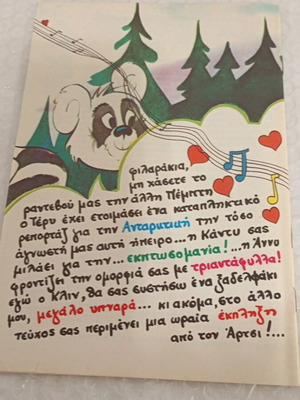 φιλαράκια,
μη χάσετε το
ραντεβού μας την άλλη Πέμπτη
ο Τέρυ έχει ετοιμάσει ένα καταπληκτικό
ρεπορτάζ για την Ανταρκτική την τόσο
άγνωστή μας αυτή ήπειρο... η Κάντυ σας
μιλάει για την... εκπτωσομανία!... η Αννυ
φροντίζει την ομορφιά σας με τριαντάφυλλα!
εγώ ο Κλιν, θα σας συστήσω ένα ξαδελφάκι
μου, μεγάλο υπναρά... κι ακόμα, στο άλλο
τεύχος σας περιμένει μια ωραία έκπληξη
από τον Άρτσι!...